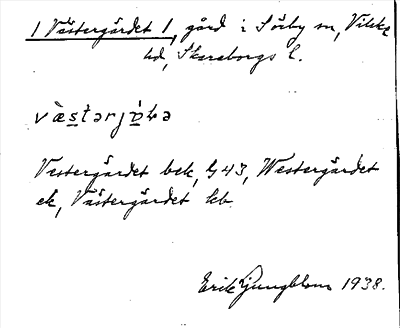 1 Västergärdet 1, gård i Sörby sn, Vilske
hd, Skaraborgs l.
Vestergärdet bek, G43, Westergärdet
ek, Västergärdet kb.
Erik Ljungblom 1938.